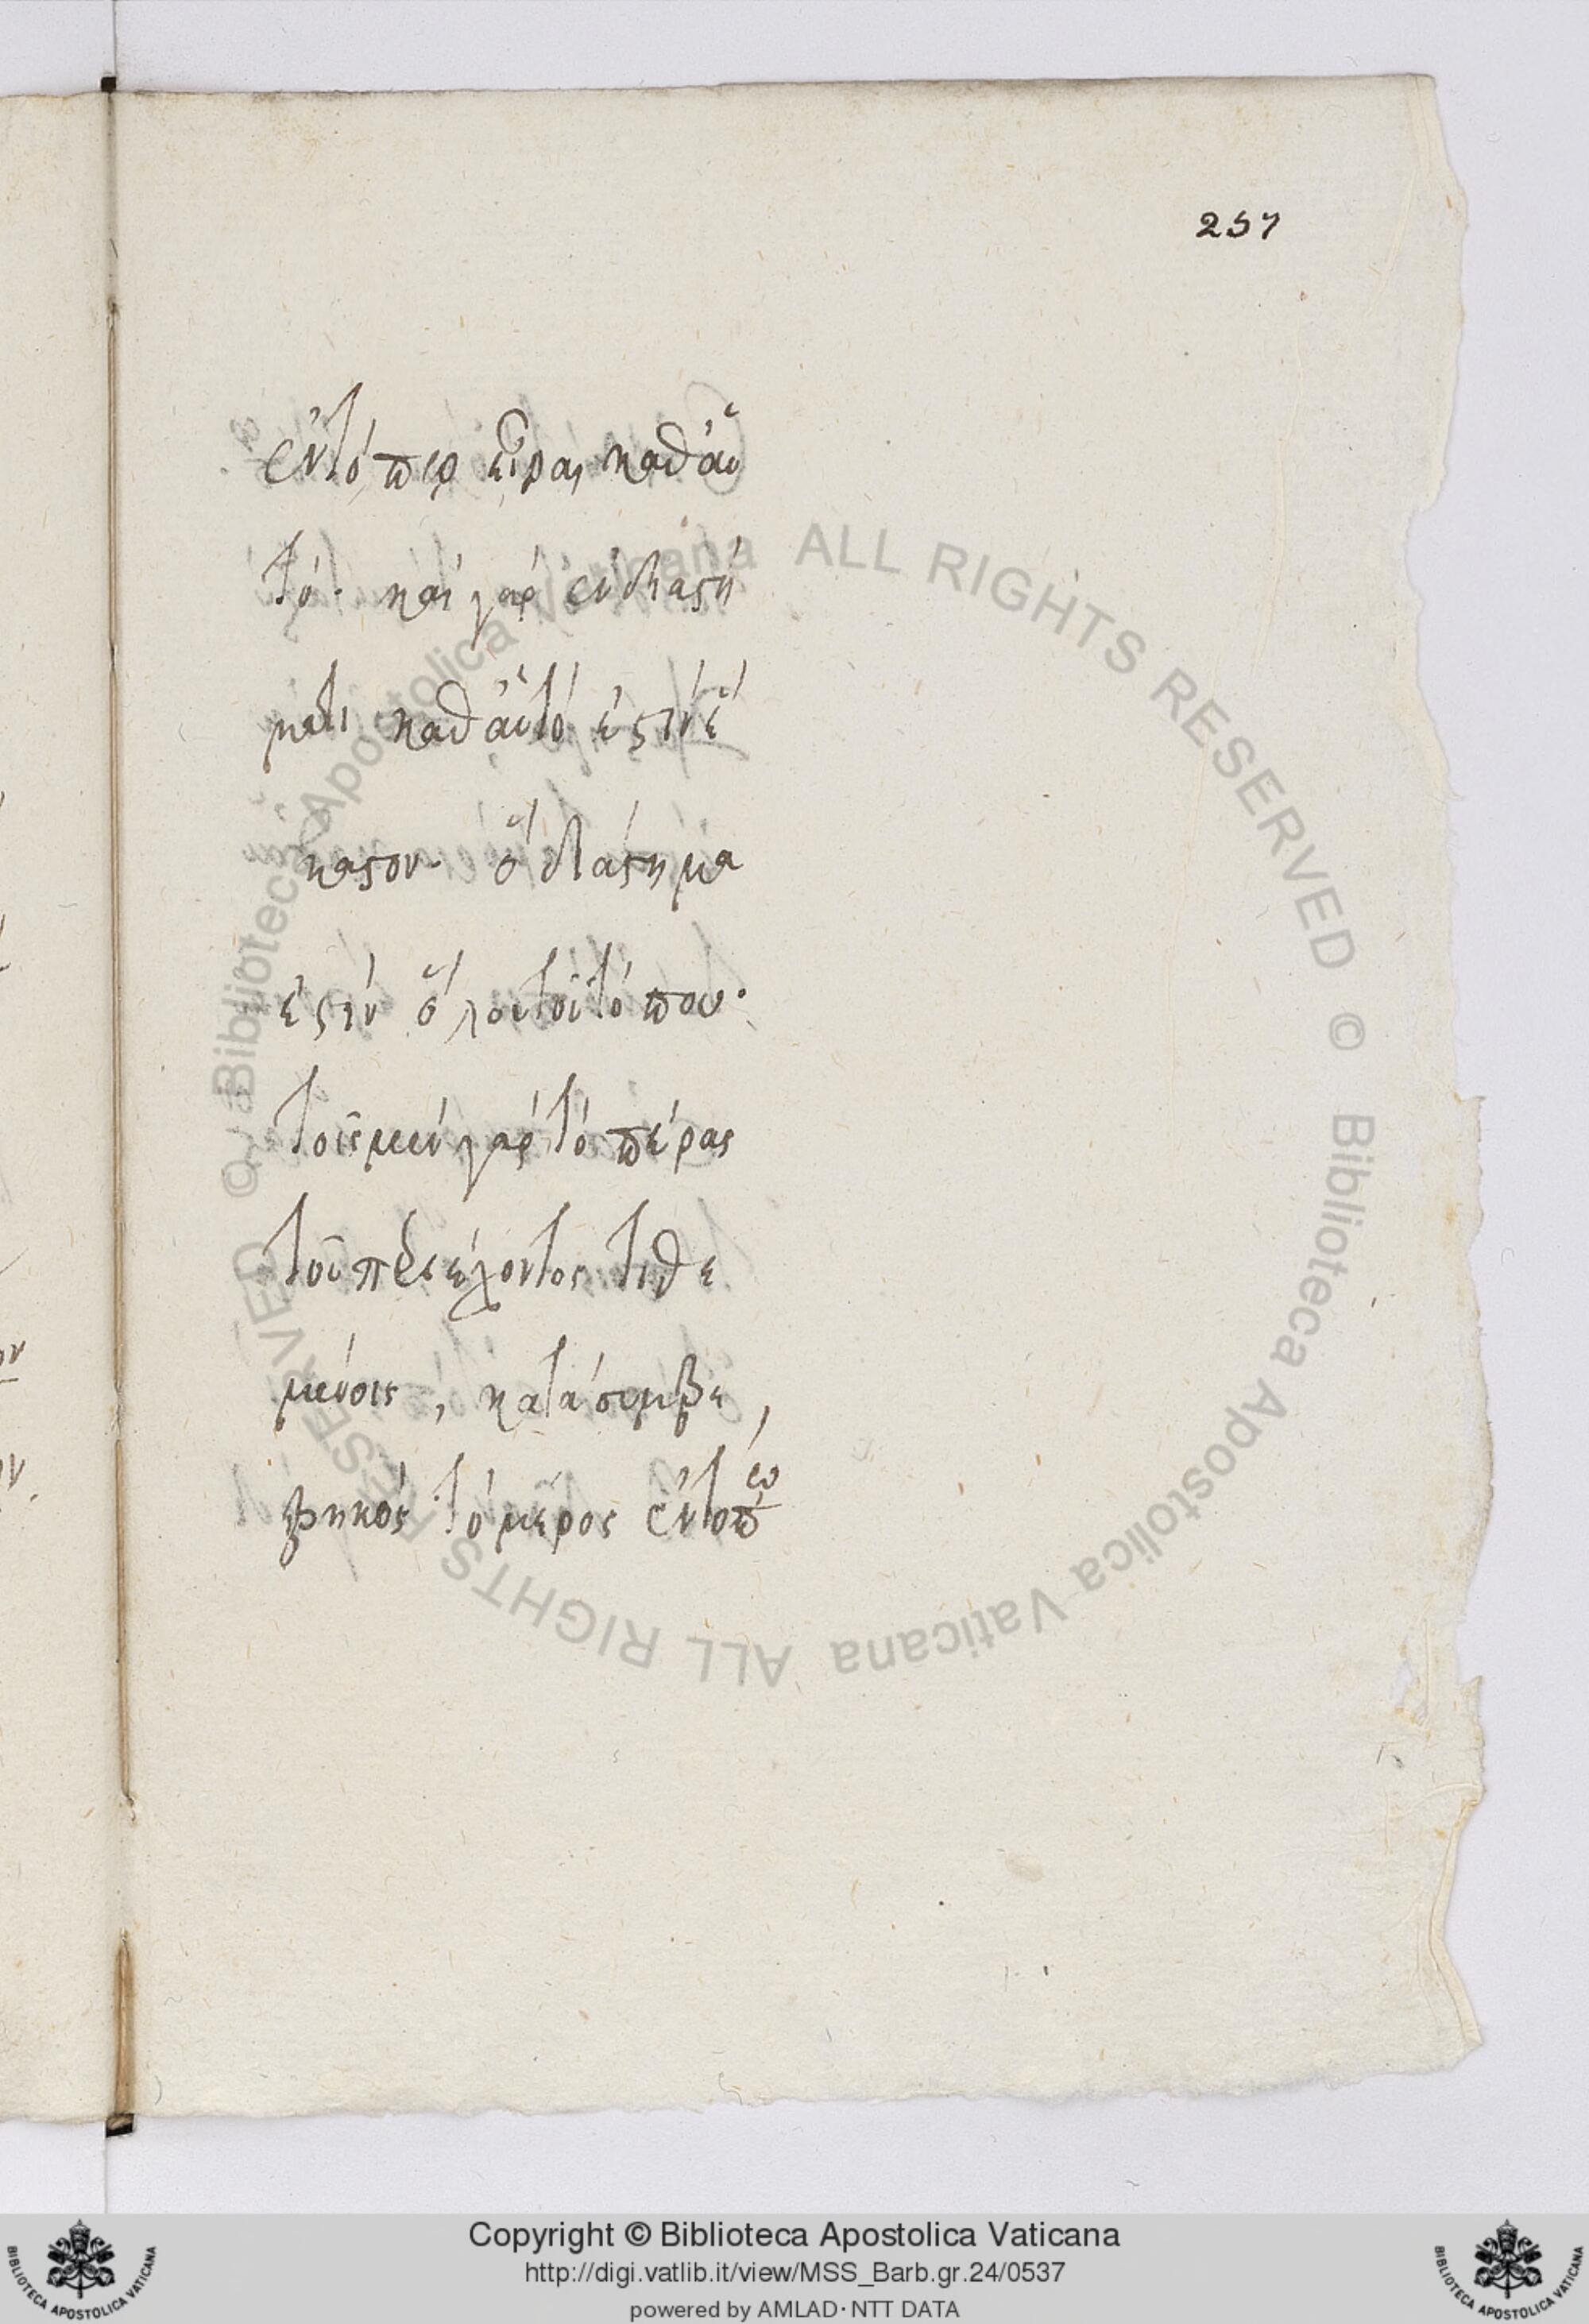 257
ἐν τόπῳ εἶναι καθ' αὑ
τό· καὶ γὰρ ἐν διαστή
ματι καθ' αὑτό ἐστιν ἕ
καστον· ὃ διάστημα
ἐστὶν ὅλου τοῦ τόπου·
τοῖς μὲν γὰρ τὸ πέρας
τοῦ περιέχοντος τιθε
μένοις, κατὰ συμβε,
βηκὸς τὸ μέρος ἐν τόπῳ
© Biblioteca Apostolica Vaticana ALL RIGHTS RESERVED © Biblioteca Apostolica Vaticana ALL RIGHTS RESERVED
Copyright © Biblioteca Apostolica Vaticana
http://digi.vatlib.it/view/MSS_Barb.gr.24/0537
powered by AMLAD·NTT DATA
BIBLIOTECA APOSTOLICA VATICANA
BIBLIOTECA APOSTOLICA VATICANA